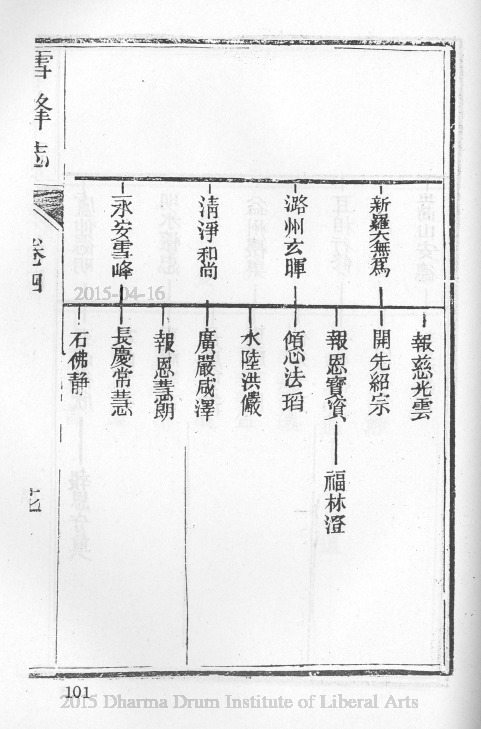 新羅大無為
潞州玄暉
清淨和尚
永安雪峰
報慈光雲
開先紹宗
報恩寶資 福林澄
傾心法瑫
水陸洪儼
廣嚴咸澤
報恩慧朗
長慶常慧
石佛靜
雪峰志
卷四
2015-04-16
101
2015 Dharma Drum Institute of Liberal Arts